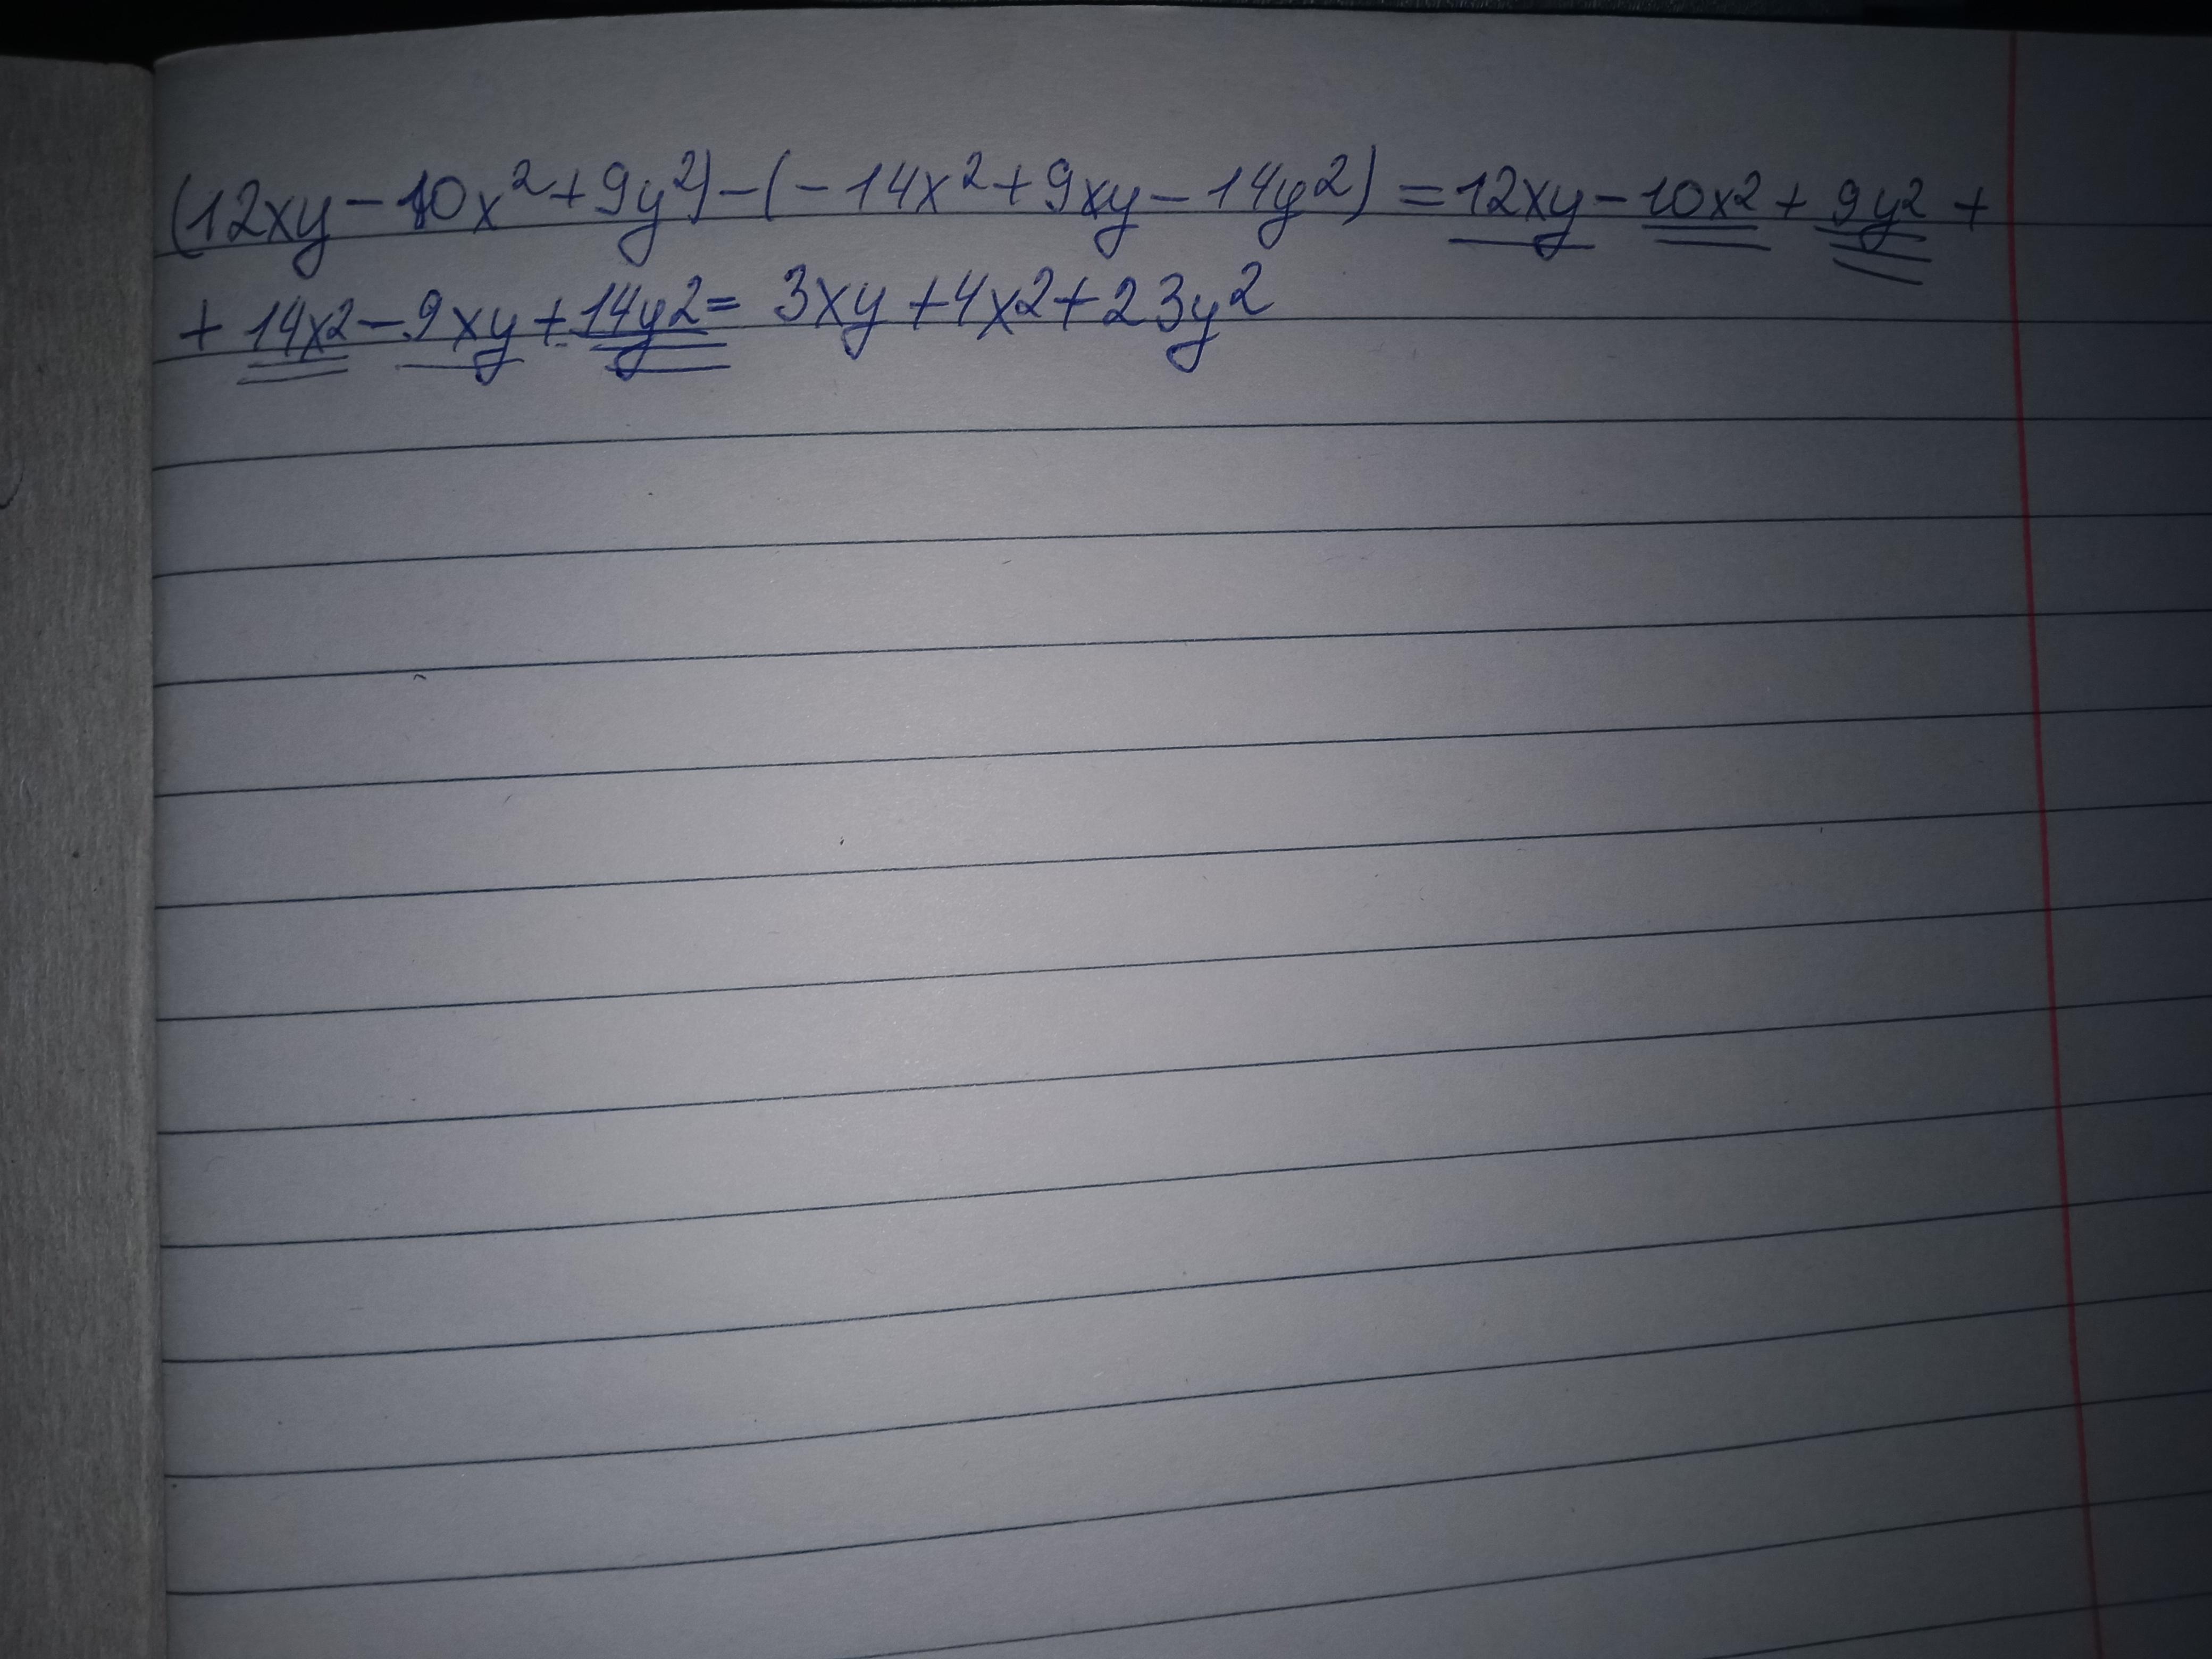 (12xy-10x²+9y²)-(-14x²+9xy-14y²)=12xy-10x²+9y²+
+14x²-9xy+14y²=3xy+4x²+23y²